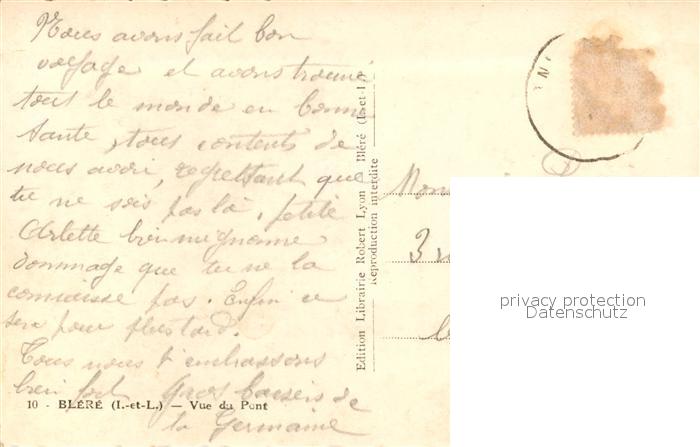 Nous avons fait bon
voyage et avons trouvé
tout le monde en bonne
santé, tous contents de
nous avoir, regrettant que
tu ne sois pas là, petite
Arlette bien mignonne
dommage que tu ne la
connaisse pas. Enfin ce
sera pour plus tard.
Tous nous t'embrassons
bien fort Gros baisers de
la Germaine
10 - BLÉRÉ (I.-et-L.) — Vue du Pont
Edition Librairie Robert Lyon Bléré (I.-et-L.)
Reproduction interdite
3
privacy protection
Datenschutz